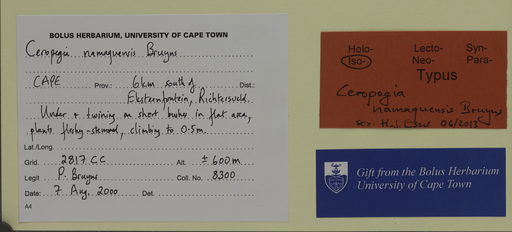 BOLUS HERBARIUM, UNIVERSITY OF CAPE TOWN
Ceropegia namaquensis Bruyns
CAPE Prov.: 6km south of Dist.:
Eksteenfontein, Richtersveld.
Under & twining on short bushes in flat area,
plants fleshy-stemmed, climbing to 0.5m.
Lat./Long.
Grid. 2817 CC Alt. ± 600m
Legit P. Bruyns Coll. No. 8300
Date: 7 Aug. 2000 Det.
A4
Holo- Lecto- Syn-
Iso- Neo- Para-
Typus
Ceropegia
namaquensis Bruyns
06/2013
Gift from the Bolus Herbarium
University of Cape Town